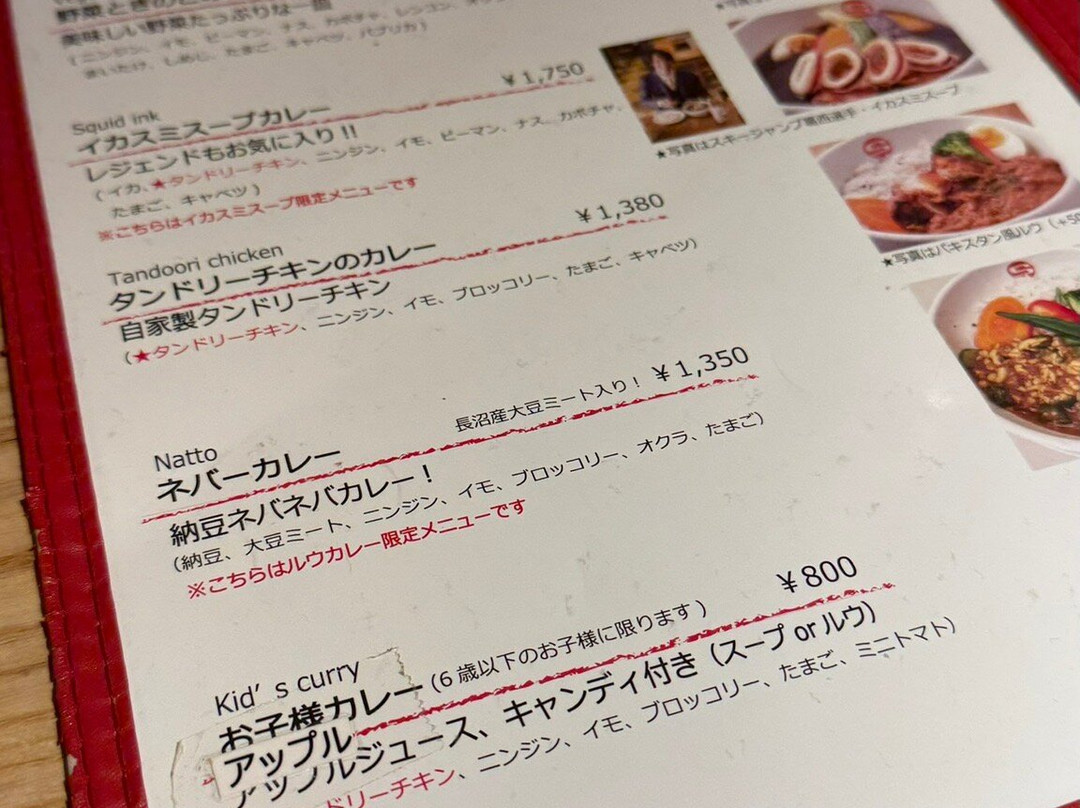 野菜ときのこ
美味しい野菜たっぷりな一皿
(ニンジン、イモ、ピーマン、ナス、カボチャ、レンコン、
まいたけ、しめじ、たまご、キャベツ、パプリカ)
Squid ink
イカスミスープカレー ¥1,750
レジェンドもお気に入り!!
(イカ、★タンドリーチキン、ニンジン、イモ、ピーマン、ナス、カボチャ、
たまご、キャベツ)
※こちらはイカスミスープ限定メニューです
Tandoori chicken
タンドリーチキンのカレー ¥1,380
自家製タンドリーチキン
(★タンドリーチキン、ニンジン、イモ、ブロッコリー、たまご、キャベツ)
Natto
ネバーカレー 長沼産大豆ミート入り! ¥1,350
納豆ネバネバカレー!
(納豆、大豆ミート、ニンジン、イモ、ブロッコリー、オクラ、たまご)
※こちらはルウカレー限定メニューです
Kid's curry
お子様カレー(6歳以下のお子様に限ります) ¥800
アップル
アップルジュース、キャンディ付き(スープorルウ)
ドリーチキン、ニンジン、イモ、ブロッコリー、たまご、ミニトマト)
★写真は
★写真はスキージャンプ葛西選手・イカスミスープ
★写真はパキスタン風ルウ(+50